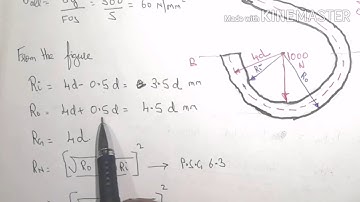 σall = σy/FOS = 300/5 = 60 N/mm²
Made with
KINEMASTER
From the figure
Ri = 4d - 0.5d = 3.5d mm
Ro = 4d + 0.5d = 4.5d mm
RG = 4d
RN = [√Ro + √Ri / 2]² → P.S.G 6.3
4d
Ri
1000
N
Ro